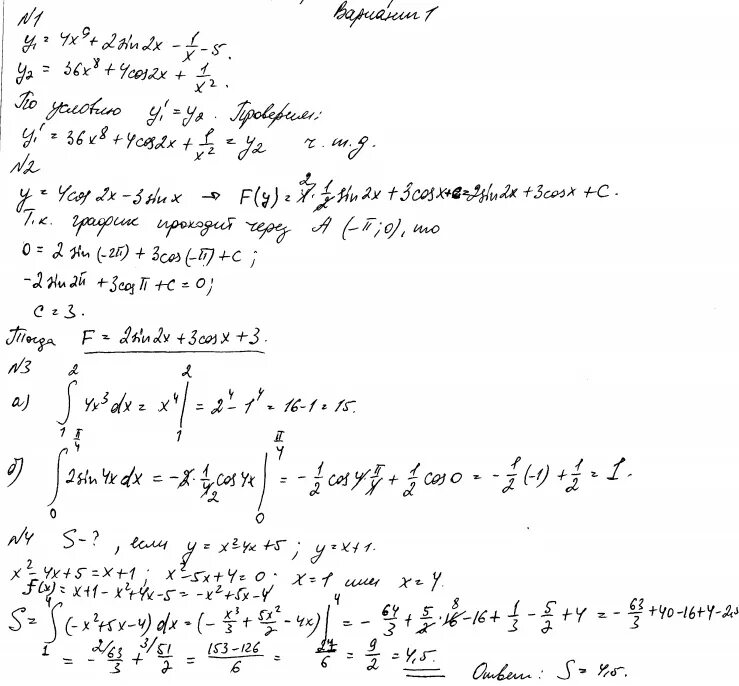 Вариант 1
N1
y₁ = 4x⁹ + 2sin2x - 1/x - 5.
y₂ = 36x⁸ + 4cos2x + 1/x².
По условию y₁' = y₂. Проверим:
y₁' = 36x⁸ + 4cos2x + 1/x² = y₂ ч.т.д.
N2
y = 4cos2x - 3sinx → F(y) = 4·1/2 sin2x + 3cosx + C = 2sin2x + 3cosx + C.
Т.к. график проходит через A (-π; 0), то
0 = 2 sin(-2π) + 3cos(-π) + C;
-2sin2π + 3cosπ + C = 0;
C = 3.
Тогда F = 2sin2x + 3cosx + 3.
N3
а) ∫₁² 4x³dx = x⁴ |₁² = 2⁴ - 1⁴ = 16 - 1 = 15.
б) ∫₀^(π/4) 2sin4xdx = -2·1/4 cos4x |₀^(π/4) = -1/2 cos4·π/4 + 1/2 cos0 = -1/2(-1) + 1/2 = 1.
N4 S-?, если y = x²-4x+5; y = x+1.
x²-4x+5 = x+1; x²-5x+4 = 0. x = 1 или x = 4.
f(x) = x+1-x²+4x-5 = -x²+5x-4
S = ∫₁⁴ (-x²+5x-4)dx = (-x³/3 + 5x²/2 - 4x) |₁⁴ = -64/3 + 5/2·16 - 16 + 1/3 - 5/2 + 4 = -63/3 + 40-16+4-2,5
= -63/3 + 51/2 = (153-126)/6 = 27/6 = 9/2 = 4,5. Ответ: S = 4,5.